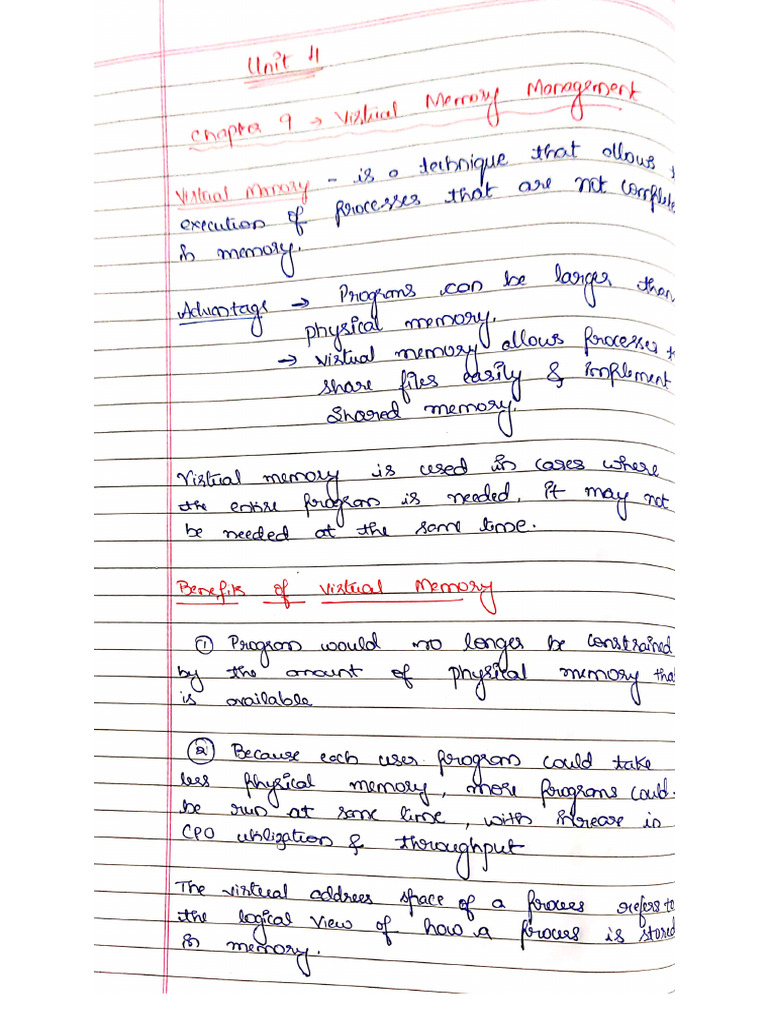 Unit 4
Chapter 9 → Virtual Memory Management
Virtual Memory - is a technique that allows
execution of processes that are not complete
in memory.
Advantags → Programs can be larger than
physical memory.
→ Virtual memory allows processes to
share files easily & implement
shared memory.
Virtual memory is used in cases where
the entire program is needed, it may not
be needed at the same time.
Benefits of Virtual Memory
① Program would no longer be constrained
by the amount of physical memory that
is available
② Because each user program could take
less physical memory, more programs could
be run at same time, with increase in
CPU utilization & throughput
The virtual address space of a process refers to
the logical view of how a process is stored
in memory.